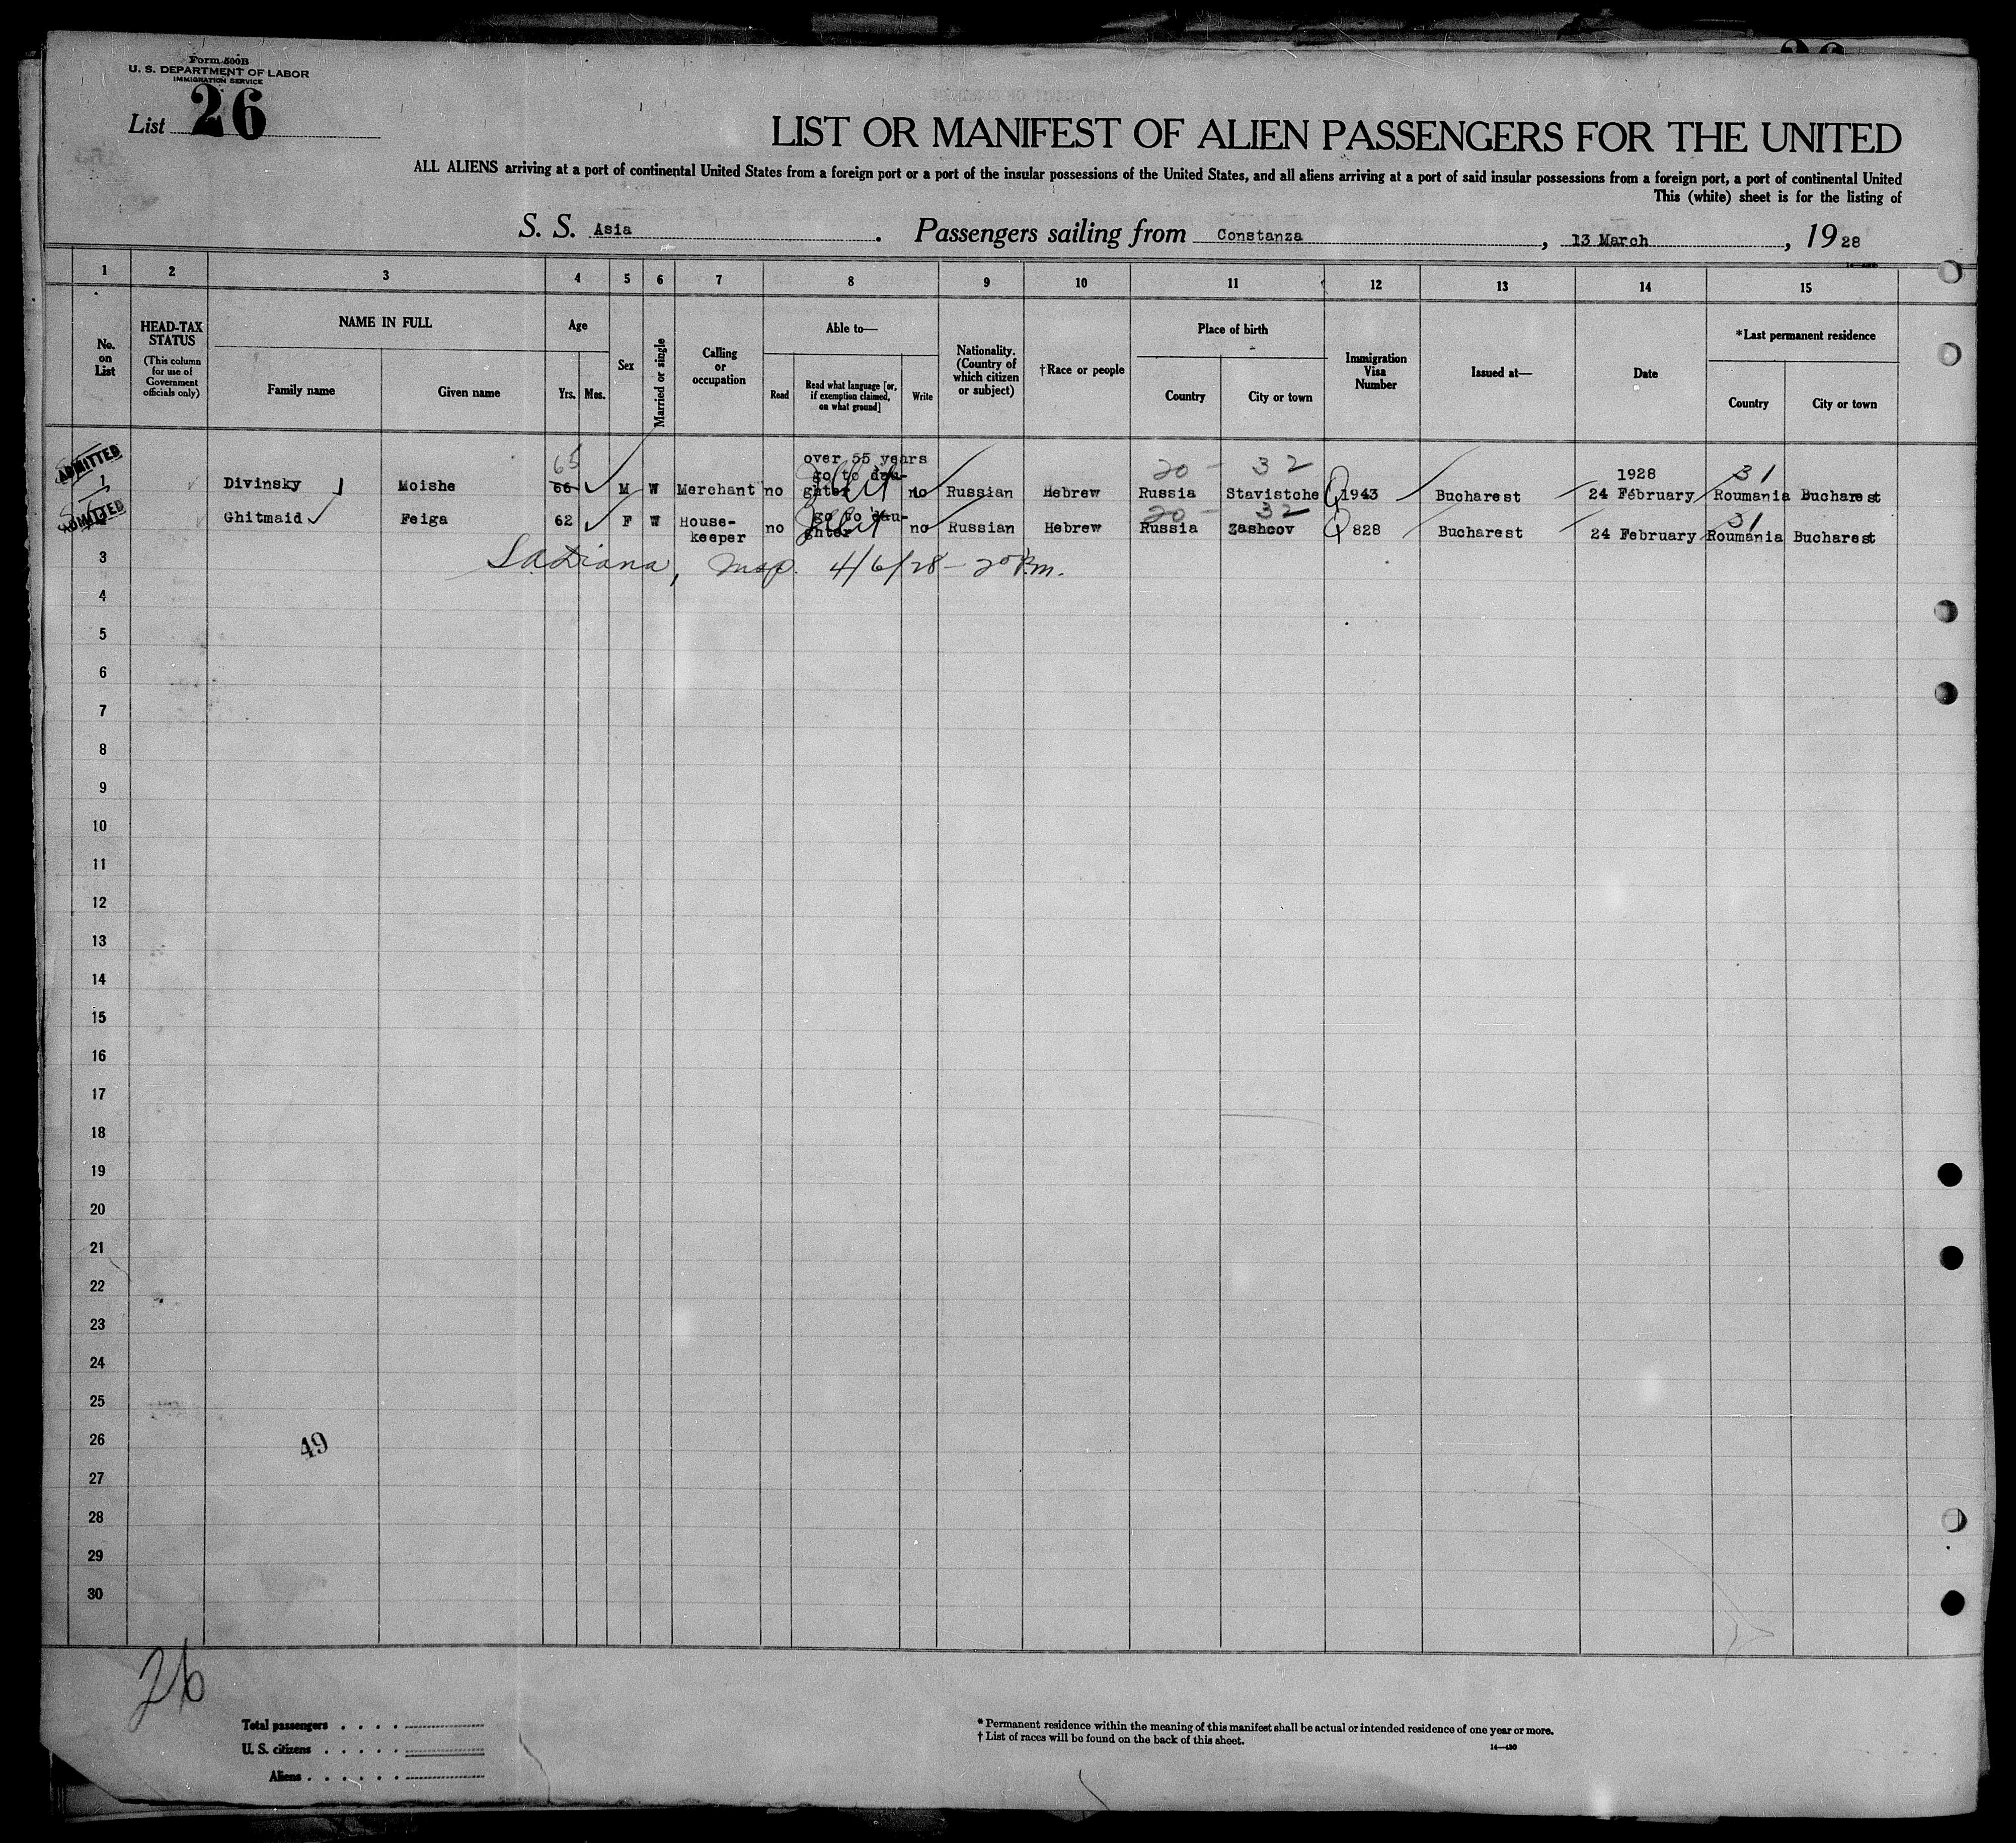 Form 500B
U. S. DEPARTMENT OF LABOR
IMMIGRATION SERVICE
List 26
LIST OR MANIFEST OF ALIEN PASSENGERS FOR THE UNITED
ALL ALIENS arriving at a port of continental United States from a foreign port or a port of the insular possessions of the United States, and all aliens arriving at a port of said insular possessions from a foreign port, a port of continental United
This (white) sheet is for the listing of
S. S. Asia . Passengers sailing from Constanza , 13 March , 19 28
1 2 3 4 5 6 7 8 9 10 11 12 13 14 15
No. on List
HEAD-TAX STATUS
(This column for use of Government officials only)
NAME IN FULL
Family name Given name
Age
Yrs. Mos.
Sex
Married or single
Calling or occupation
Able to—
Read
Read what language [or, if exemption claimed, on what ground]
Write
Nationality. (Country of which citizen or subject)
†Race or people
Place of birth
Country City or town
Immigration Visa Number
Issued at—
Date
*Last permanent residence
Country City or town
ADMITTED
65 over 55 years 20 - 32 1928 31
1 Divinsky Moishe 66 M W Merchant no go to dau-ghter no Russian Hebrew Russia Stavistche Q 1943 Bucharest 24 February Roumania Bucharest
ADMITTED
20 - 32 31
Ghitmaid Feiga 62 F W House-keeper no go to dau-ghter no Russian Hebrew Russia Zashcov Q 828 Bucharest 24 February Roumania Bucharest
3 4/6/28
4
5
6
7
8
9
10
11
12
13
14
15
16
17
18
19
20
21
22
23
24
25
26
49
27
28
29
30
26
Total passengers . . . .
U. S. citizens . . . . .
Aliens . . . . . .
* Permanent residence within the meaning of this manifest shall be actual or intended residence of one year or more.
† List of races will be found on the back of this sheet.
14—430